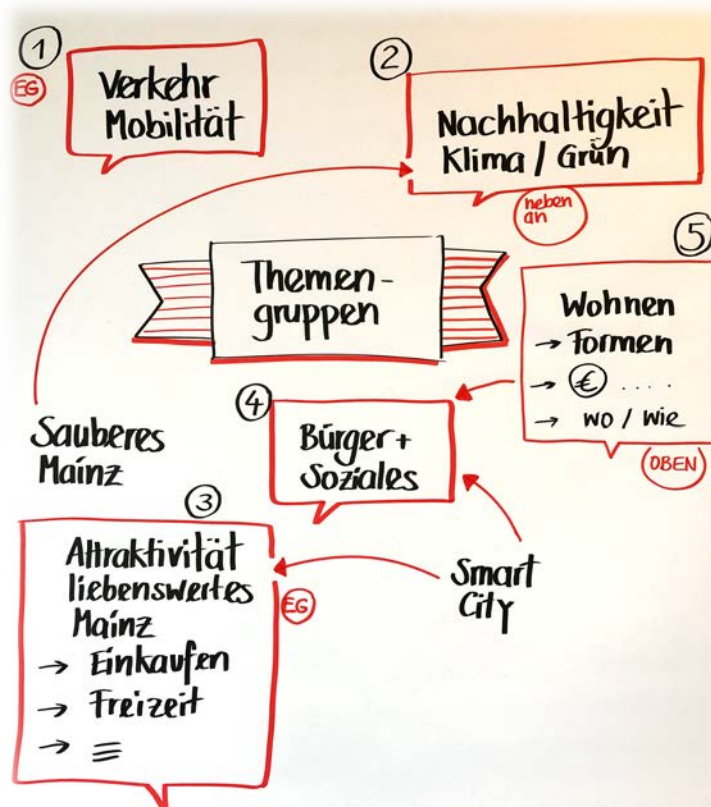 1
EG
Verkehr
Mobilität
2
Nachhaltigkeit
Klima / Grün
neben
an
Themen-
gruppen
5
Wohnen
→ Formen
→ € ....
→ wo / wie
OBEN
4
Bürger +
Soziales
Sauberes
Mainz
3
Attraktivität
liebenswertes
Mainz
→ Einkaufen
→ Freizeit
→
EG
Smart
City